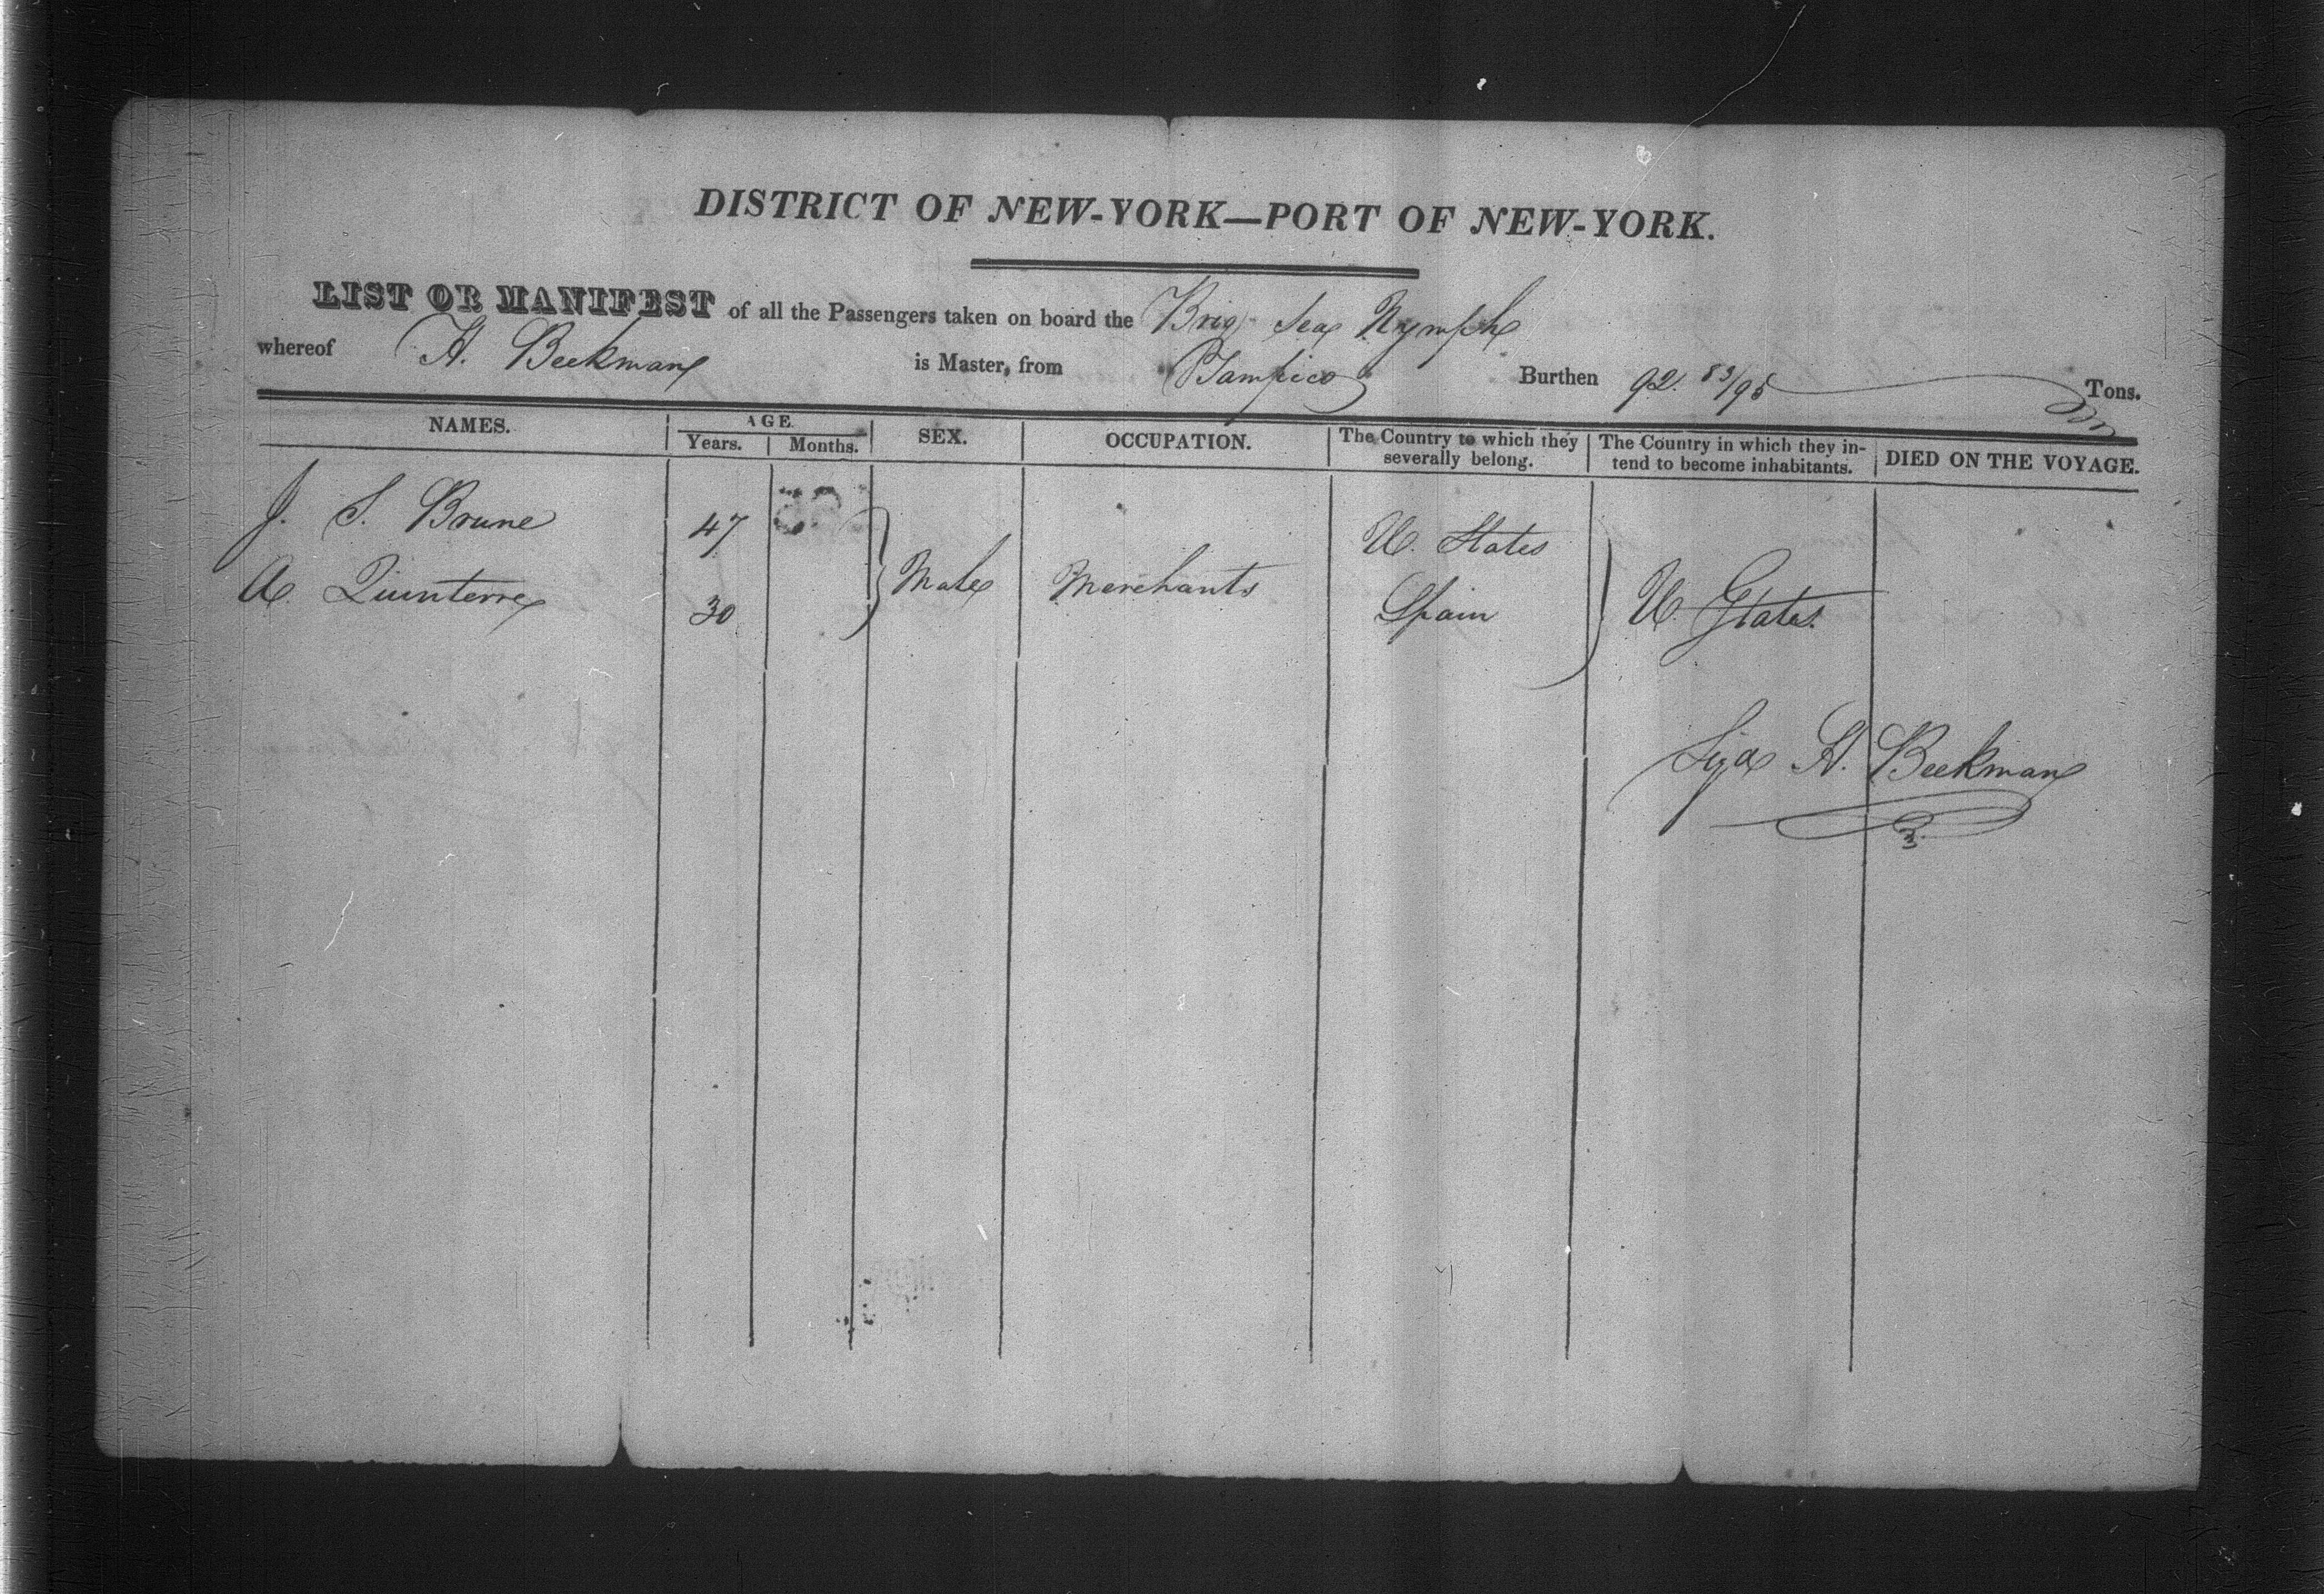 DISTRICT OF NEW-YORK—PORT OF NEW-YORK.
LIST OR MANIFEST of all the Passengers taken on board the Brig Sea Nymph
whereof H. Beekman is Master, from Tampico Burthen 92. 83/95 Tons.
NAMES. AGE. SEX. OCCUPATION. The Country to which they severally belong. The Country in which they in- DIED ON THE VOYAGE.
Years. Months. tend to become inhabitants.
J. S. Brune 47 U. States
A. Quinterre 30 Male Merchants Spain U. States.
H. Beekman